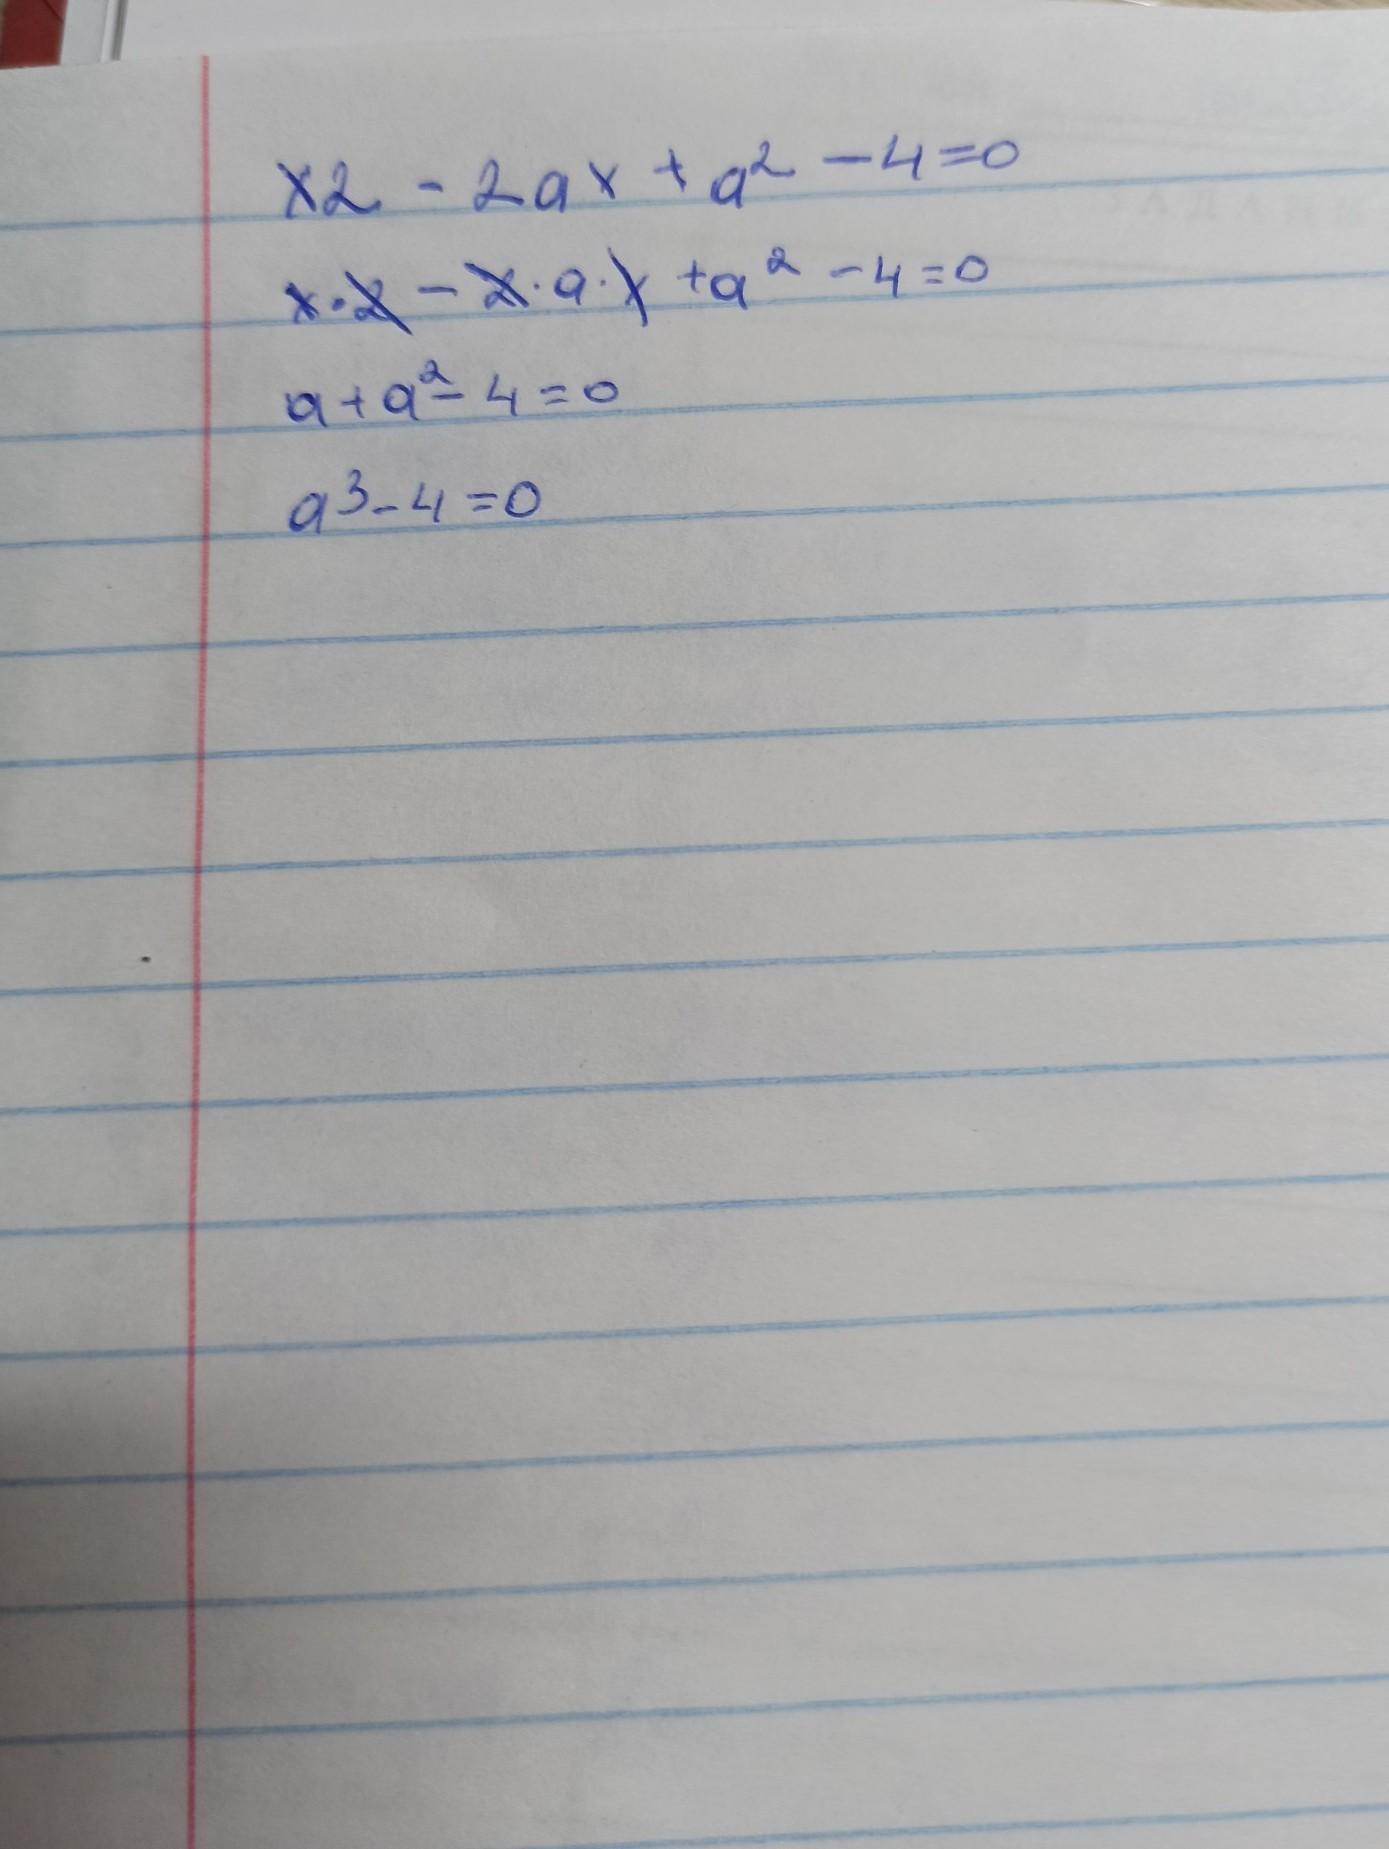 x2 - 2ax + a² - 4 = 0
x · 2 - 2 · a · x + a² - 4 = 0
a + a² - 4 = 0
a³ - 4 = 0